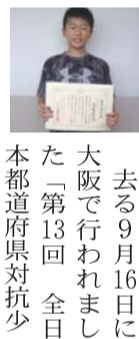 去る９月16日に
大阪で行われまし
た「第13回　全日
本都道府県対抗少